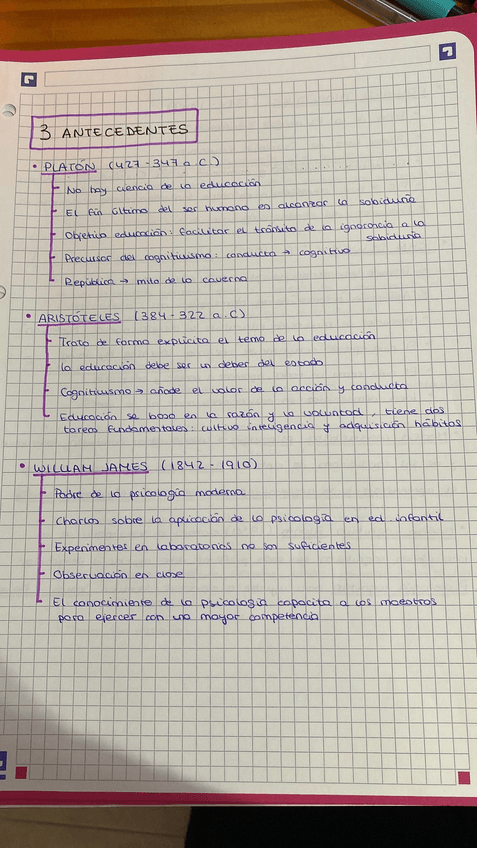 3 ANTECEDENTES
• PLATÓN (427-347 a.C)
No hay ciencia de la educación
El fin último del ser humano es alcanzar la sabiduría
Objetivo educación: facilitar el tránsito de la ignorancia a la
sabiduría
Precursor del cognitivismo: conducta → cognitivo
República → mito de la caverna
• ARISTÓTELES (384-322 a.C)
Trata de forma explícita el tema de la educación
la educación debe ser un deber del estado
Cognitivismo → añade el valor de la acción y conducta
Educación se basa en la razón y la voluntad, tiene dos
tareas fundamentales: cultivo inteligencia y adquisición hábitos
• WILLIAM JAMES (1842-1910)
Padre de la psicología moderna
Charlas sobre la aplicación de la psicología en ed. infantil
Experimentes en laboratorios no son suficientes
Observación en clase
El conocimiento de la psicología capacita a los maestros
para ejercer con una mayor competencia